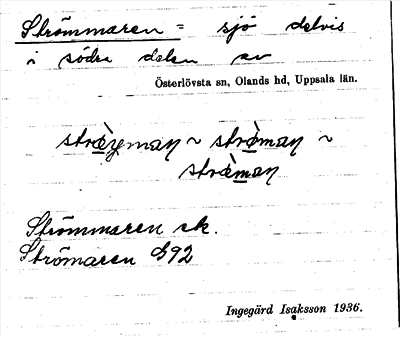 Strömmaren = sjö delvis
i södra delen av
Österlövsta sn, Olands hd, Uppsala län.
~ ~
Strömmaren ek.
Strömaren G92
Ingegärd Isaksson 1936.